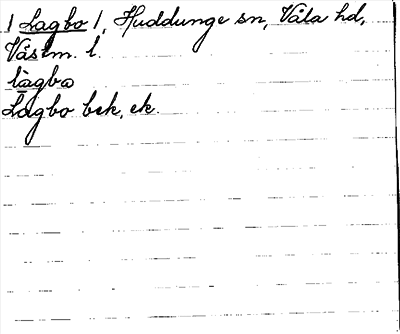 / Lagbo /, Huddunge sn, Våla hd,
Västm. l.
làgbo
Lagbo bek, ek.